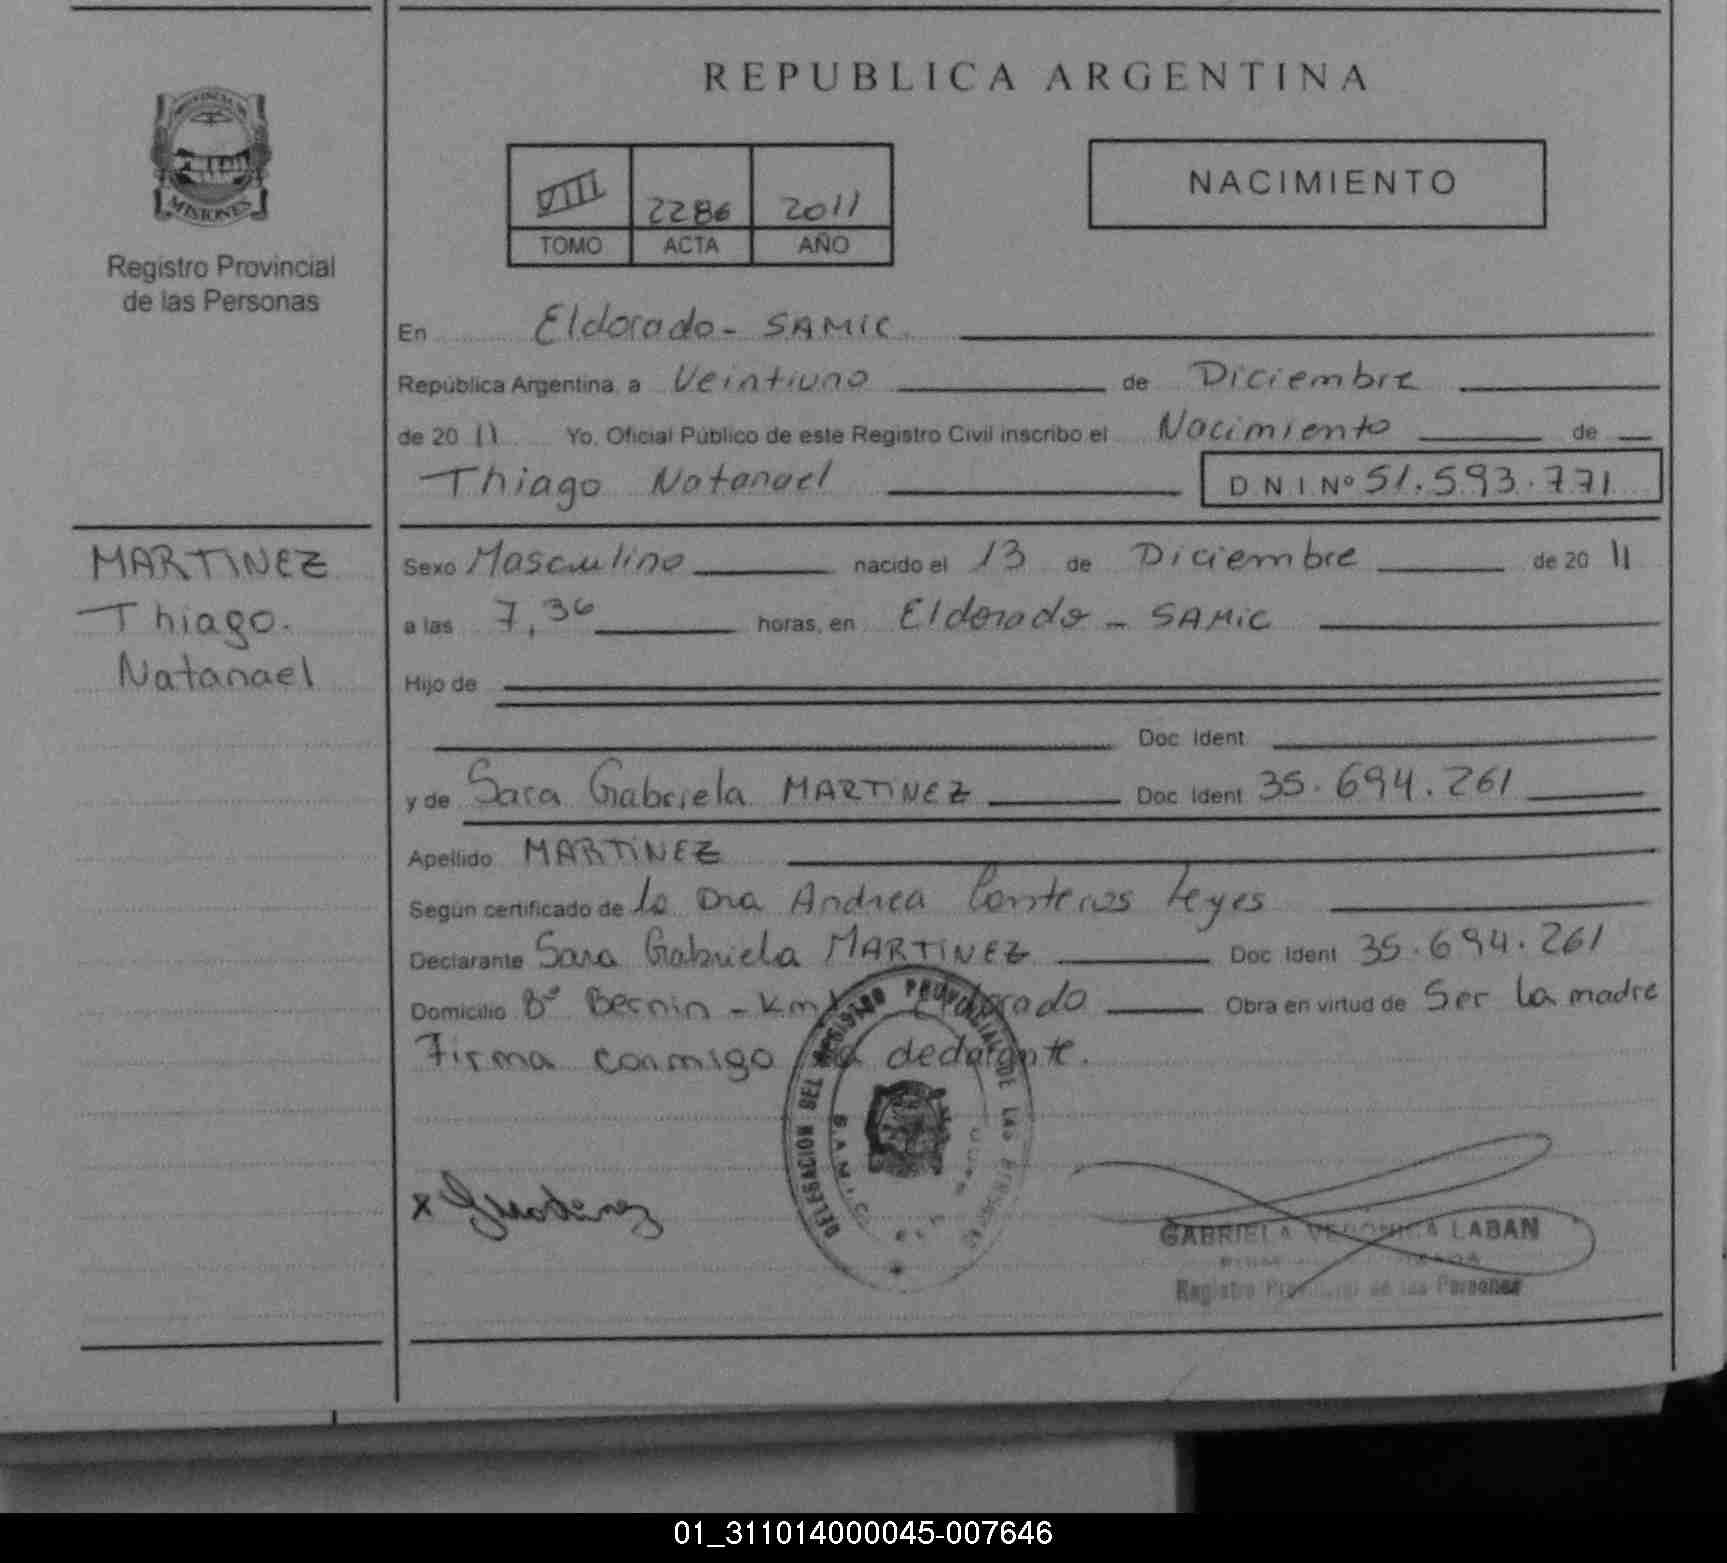 REPUBLICA ARGENTINA
PROVINCIA DE
MISIONES
Registro Provincial
de las Personas
VIII 2286 2011
TOMO ACTA AÑO
NACIMIENTO
En Eldorado - SAMIC
República Argentina, a Veintiuno de Diciembre
de 2011 Yo, Oficial Público de este Registro Civil inscribo el Nacimiento de
Thiago Natanael D N I Nº 51.593.771
MARTINEZ
Thiago.
Natanael
Sexo Masculino nacido el 13 de Diciembre de 2011
a las 7,36 horas, en Eldorado - SAMIC
Hijo de
Doc Ident
y de Sara Gabriela MARTINEZ Doc Ident 35.694.261
Apellido MARTINEZ
Según certificado de la Dra Andrea Leyes
Declarante Sara Gabriela MARTINEZ Doc Ident 35.694.261
Domicilio Bº - Km Eldorado Obra en virtud de Ser la madre
Firma conmigo la declarante.
DELEGACION DEL REGISTRO PROVINCIAL DE LAS PERSONAS
x GMartinez
GABRIELA VERONICA LABAN
Registro Provincial de las Personas
01_311014000045-007646